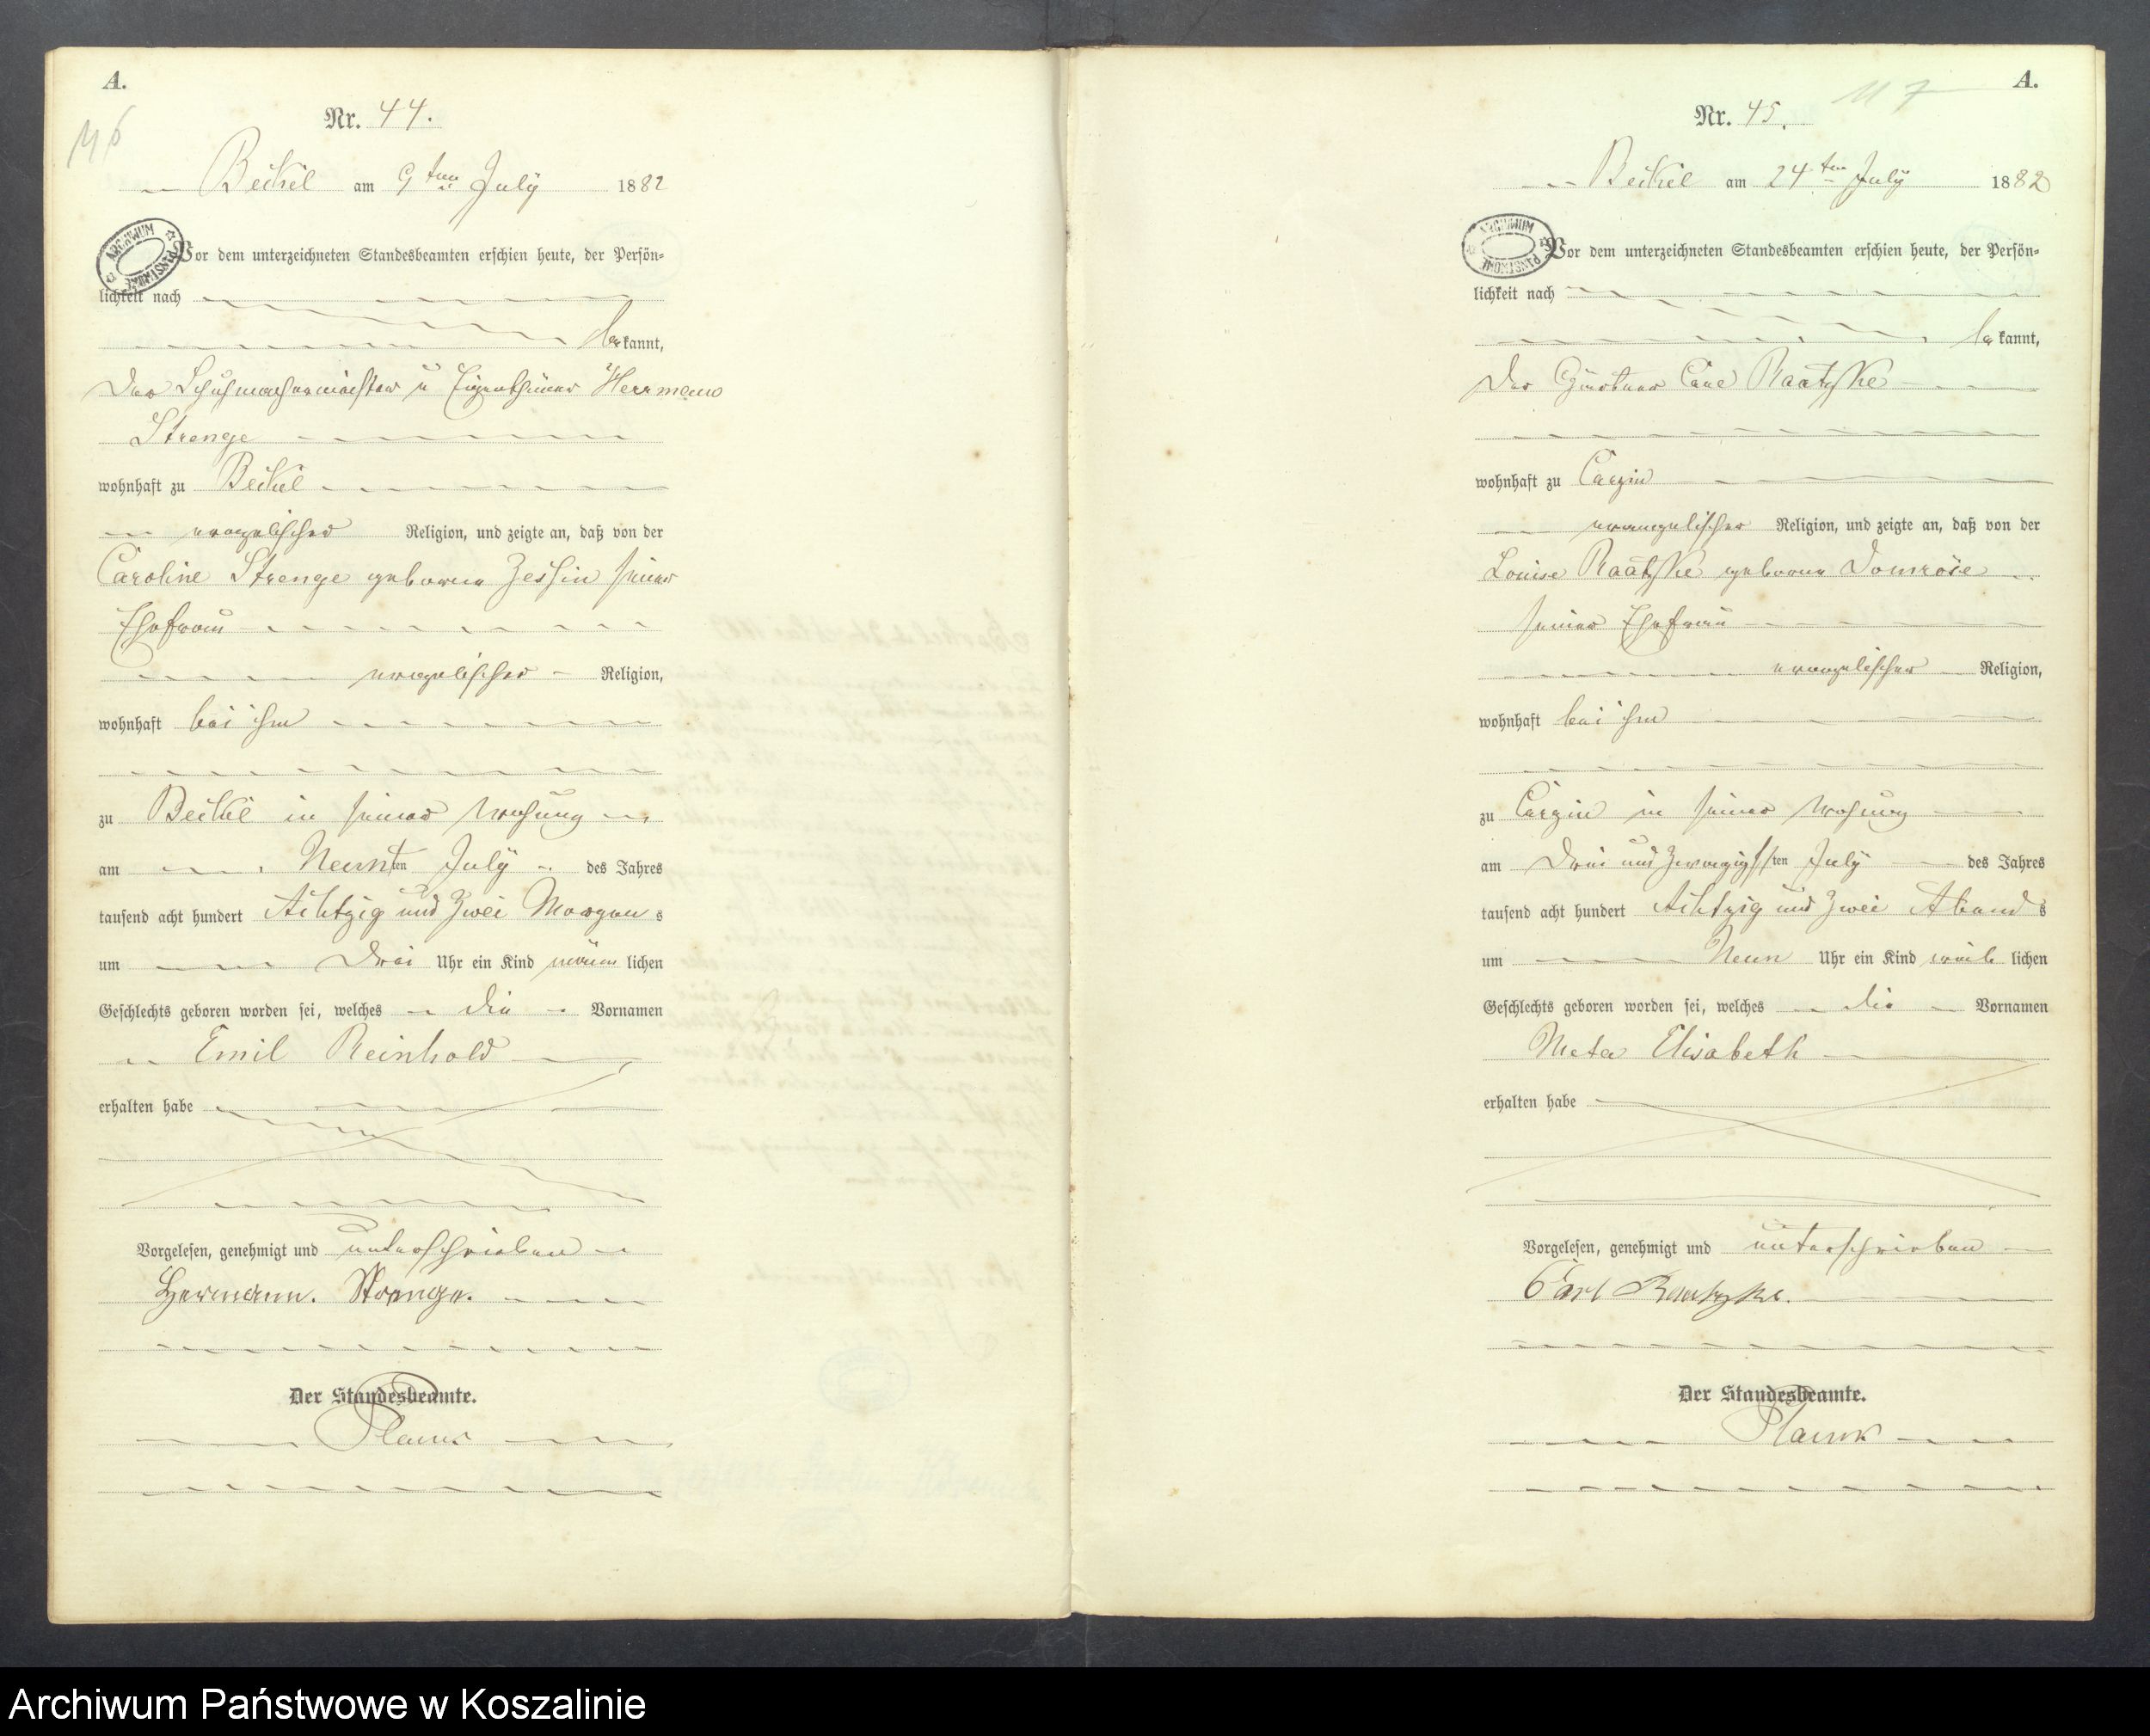 A.
116
Nr. 44.
Beckel am 9ten July 1882
ARCHIWUM PAŃSTWOWE
Vor dem unterzeichneten Standesbeamten erschien heute, der Persön-
lichkeit nach
be kannt,
der Schuhmachermeister u Eigenthümer Herrmann
Strenge
wohnhaft zu Beckel
evangelischer Religion, und zeigte an, daß von der
Caroline Strenge geborne Zessin seiner
Ehefrau
evangelischer Religion,
wohnhaft bei ihm
zu Beckel in seiner Wohung
am Neunten July des Jahres
tausend acht hundert Achtzig und Zwei Morgens
um Drei Uhr ein Kind männ lichen
Geschlechts geboren worden sei, welches die Vornamen
Emil Reinhold
erhalten habe
Vorgelesen, genehmigt und unterschrieben
Hermann. Strenge.
Der Standesbeamte.
A.
117
Nr. 45.
Beckel am 24ten July 1882
ARCHIWUM PAŃSTWOWE
Vor dem unterzeichneten Standesbeamten erschien heute, der Persön-
lichkeit nach
be kannt,
der Gärtner Carl Raatzke
wohnhaft zu Carzin
evangelischer Religion, und zeigte an, daß von der
Louise Raatzke geborne Domröse
seiner Ehefrau
evangelischer Religion,
wohnhaft bei ihm
zu Carzin in seiner Wohung
am Drei und Zwanzigsten July des Jahres
tausend acht hundert Achtzig und Zwei Abends
um Neun Uhr ein Kind weib lichen
Geschlechts geboren worden sei, welches die Vornamen
Meta Elisabeth
erhalten habe
Vorgelesen, genehmigt und unterschrieben
Carl Raatzke.
Der Standesbeamte.
Archiwum Państwowe w Koszalinie